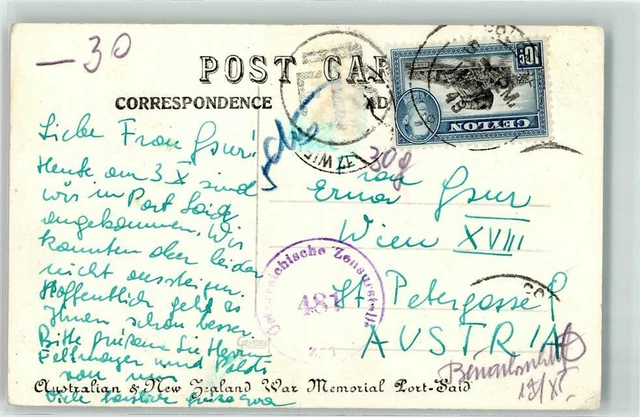 — 30
POST CAR
CORRESPONDENCE AD
10c
CEYLON
30g
Liebe Frau Gsur!
Heute am 3 X sind
wir in Port Said
angekommen. Wir
konnten aber leider
nicht aussteigen.
Hoffentlich geht es
Ihnen schon besser.
Bitte grüßen Sie Herrn
Fellmayer und Poldi
von mir
Viele herzliche Grüsse
Frau
Erna Gsur
Wien XVIII
Petergasse
AUSTRIA
Österreichische Zensurstelle
481
19/XI.
Australian & New Zealand War Memorial Port-Said